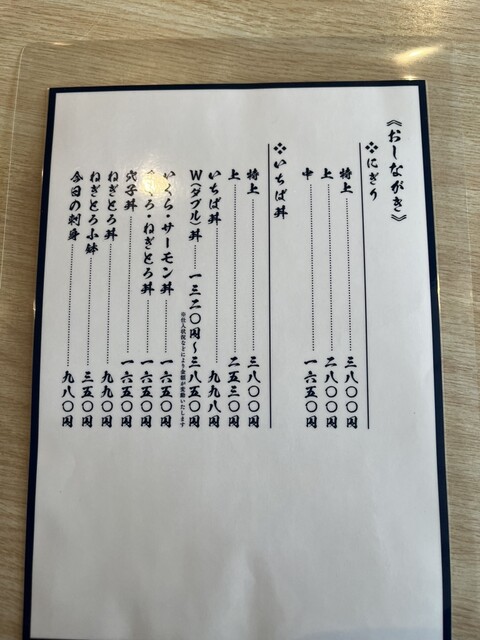 《おしながき》
❖にぎり
特上……三八〇〇円
上……二八〇〇円
中……一六五〇円
❖いちば丼
特上……三八〇〇円
上……二五三〇円
いちば丼……九九八円
W(ダブル)丼……一三二〇円〜三八五〇円
※仕入状況などにより金額が変動いたします
いくら・サーモン丼……一六五〇円
・ねぎとろ丼……一六五〇円
穴子丼……一六五〇円
ねぎとろ丼……九九〇円
ねぎとろ小鉢……三五〇円
今日の刺身……九八〇円